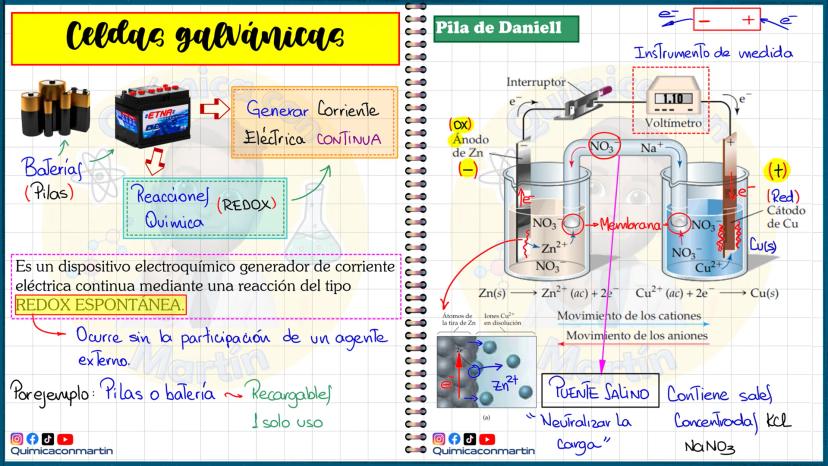 Celdas galvánicas
ETNA
Baterías
(Pilas)
Generar Corriente
Eléctrica CONTINUA
Reacciones (REDOX)
Química
Es un dispositivo electroquímico generador de corriente
eléctrica continua mediante una reacción del tipo
REDOX ESPONTÁNEA.
Ocurre sin la participación de un agente
externo.
Por ejemplo: Pilas o batería
Recargables
1 solo uso
Quimicaconmartin
Pila de Daniell
e⁻ - + e⁻
Instrumento de medida
Interruptor
e⁻
1.10
e⁻
Voltímetro
(OX)
Ánodo
de Zn
(-)
NO₃⁻ Na⁺
+
(+)
(Red)
Cátodo
de Cu
Cu(s)
e⁻
e⁻
NO₃⁻ Membrana NO₃⁻
Zn²⁺
NO₃⁻
NO₃⁻
Cu²⁺
Zn(s) → Zn²⁺ (ac) + 2e⁻ Cu²⁺ (ac) + 2e⁻ → Cu(s)
Movimiento de los cationes
Movimiento de los aniones
Átomos de
la tira de Zn
Iones Cu²⁺
en disolución
e⁻
Zn²⁺
(a)
PUENTE SALINO
"Neutralizar la
carga"
Contiene sales
Concentradas KCl
NaNO₃
Quimicaconmartin